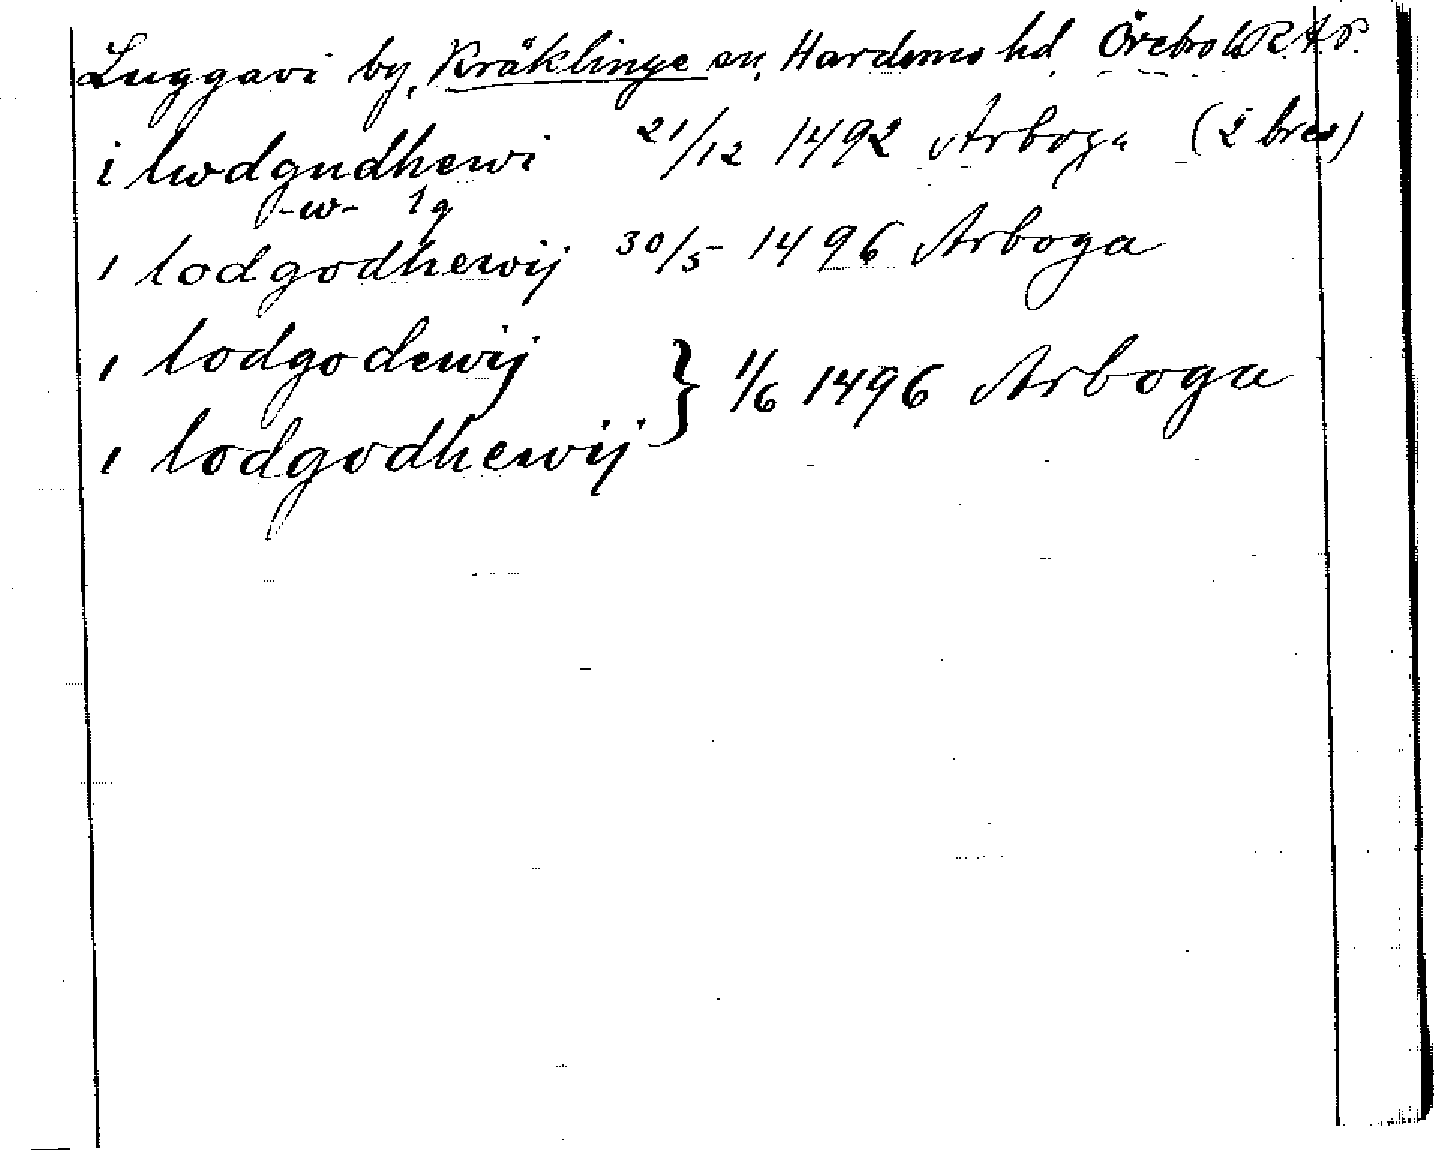 Luggavi by, Kräklinge sn, Hardemo hd Örebro l RAP.
i lwdgudhewi 21/12 1492 Arboga (2 brev)
-w- 1g
i lodgodhewij 30/5 1496 Arboga
i lodgodewij } 1/6 1496 Arboga
i lodgodhewij